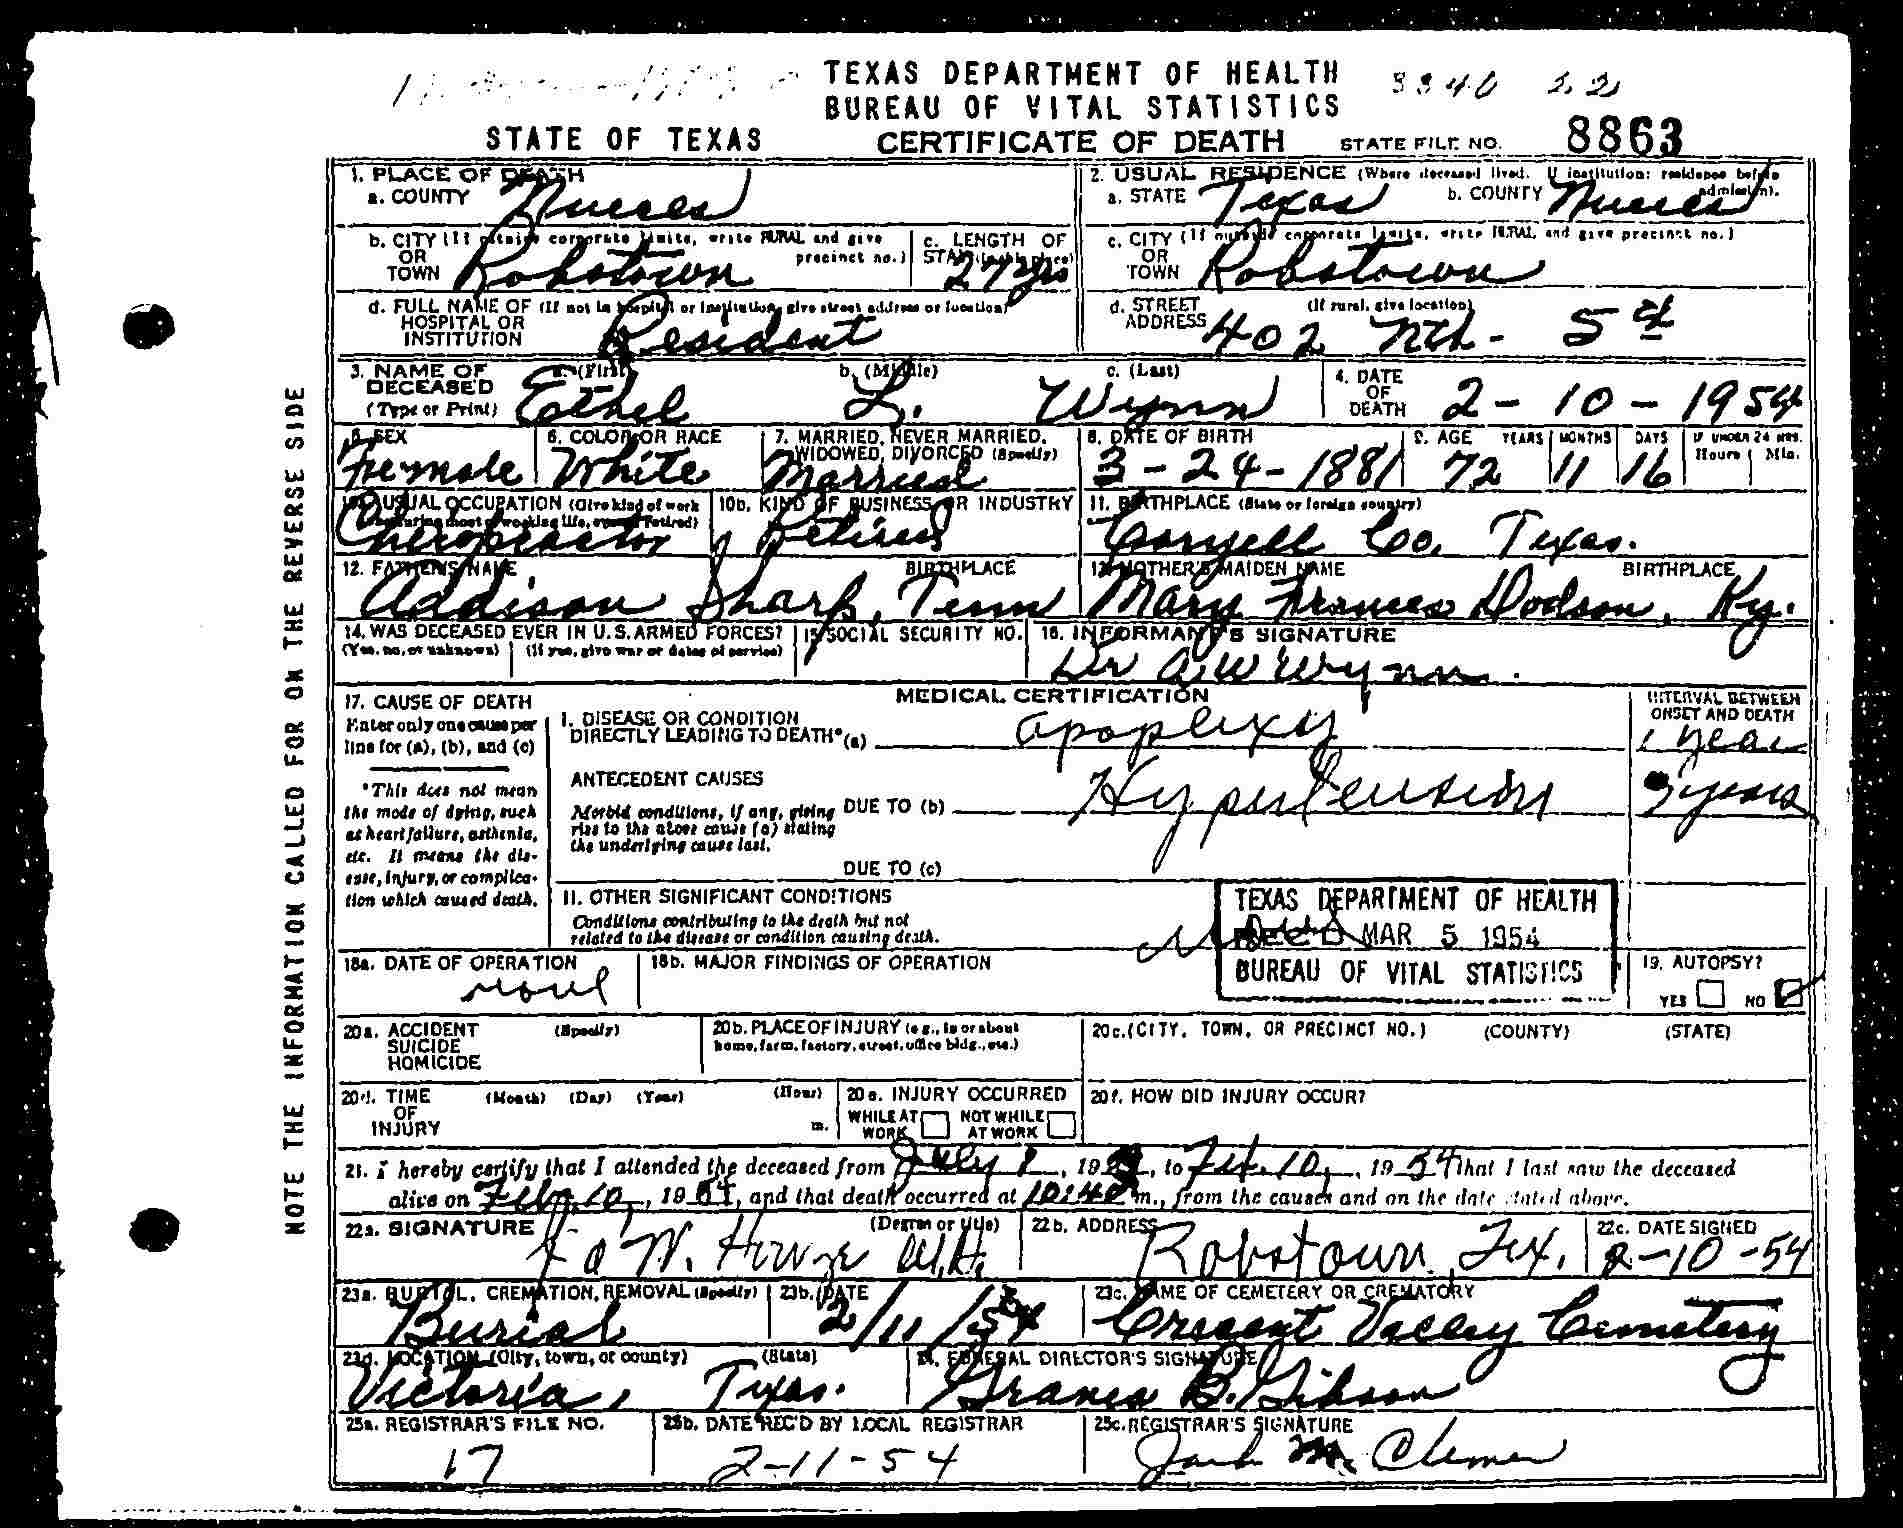 TEXAS DEPARTMENT OF HEALTH
BUREAU OF VITAL STATISTICS
STATE OF TEXAS CERTIFICATE OF DEATH STATE FILE NO. 8863
NOTE THE INFORMATION CALLED FOR ON THE REVERSE SIDE
1. PLACE OF DEATH
a. COUNTY Nueces
2. USUAL RESIDENCE (Where deceased lived. If institution: residence before admission).
a. STATE Texas b. COUNTY Nueces
b. CITY (If outside corporate limits, write RURAL and give precinct no.)
OR
TOWN Robstown
c. LENGTH OF
STAY (in this place)
27 yrs
c. CITY (If outside corporate limits, write RURAL and give precinct no.)
OR
TOWN Robstown
d. FULL NAME OF (If not in hospital or institution, give street address or location)
HOSPITAL OR
INSTITUTION Resident
d. STREET (If rural, give location)
ADDRESS 402 Nth - 5th
3. NAME OF DECEASED (Type or Print)
a. (First) Ethel
b. (Middle) L.
c. (Last) Wynn
4. DATE OF DEATH 2-10-1954
5. SEX Female
6. COLOR OR RACE White
7. MARRIED, NEVER MARRIED, WIDOWED, DIVORCED (Specify) Married
8. DATE OF BIRTH 3-24-1881
9. AGE YEARS 72 MONTHS 11 DAYS 16 IF UNDER 24 HRS. Hours Min.
10a. USUAL OCCUPATION (Give kind of work done during most of working life, even if retired) Chiropractor
10b. KIND OF BUSINESS OR INDUSTRY Retired
11. BIRTHPLACE (State or foreign country) Coryell Co. Texas.
12. FATHER'S NAME BIRTHPLACE
Addison Sharp, Tenn
13. MOTHER'S MAIDEN NAME BIRTHPLACE
Mary Frances Dodson, Ky.
14. WAS DECEASED EVER IN U.S. ARMED FORCES?
(Yes, no, or unknown) (If yes, give war or dates of service)
15. SOCIAL SECURITY NO.
16. INFORMANT'S SIGNATURE
Dr A. W Wynn.
MEDICAL CERTIFICATION
17. CAUSE OF DEATH
Enter only one cause per
line for (a), (b), and (c)
*This does not mean
the mode of dying, such
as heart failure, asthenia,
etc. It means the dis-
ease, injury, or complica-
tion which caused death.
I. DISEASE OR CONDITION
DIRECTLY LEADING TO DEATH* (a) apoplexy
INTERVAL BETWEEN
ONSET AND DEATH
1 year
ANTECEDENT CAUSES
Morbid conditions, if any, giving
rise to the above cause (a) stating
the underlying cause last.
DUE TO (b) Hypertension
years
DUE TO (c)
II. OTHER SIGNIFICANT CONDITIONS
Conditions contributing to the death but not
related to the disease or condition causing death.
TEXAS DEPARTMENT OF HEALTH
REC'D MAR 5 1954
BUREAU OF VITAL STATISTICS
18a. DATE OF OPERATION none
18b. MAJOR FINDINGS OF OPERATION
19. AUTOPSY?
YES NO
20a. ACCIDENT (Specify)
SUICIDE
HOMICIDE
20b. PLACE OF INJURY (e.g., in or about
home, farm, factory, street, office bldg., etc.)
20c. (CITY, TOWN, OR PRECINCT NO.) (COUNTY) (STATE)
20d. TIME (Month) (Day) (Year) (Hour)
OF
INJURY m.
20e. INJURY OCCURRED
WHILE AT WORK NOT WHILE AT WORK
20f. HOW DID INJURY OCCUR?
21. I hereby certify that I attended the deceased from July 1, 19, to Feb. 10, 1954 that I last saw the deceased
alive on Feb. 10, 1954, and that death occurred at 10:40 m., from the causes and on the date stated above.
22a. SIGNATURE (Degree or title)
22b. ADDRESS Robstown, Tex.
22c. DATE SIGNED 2-10-54
23a. BURIAL, CREMATION, REMOVAL (Specify) Burial
23b. DATE 2/11/54
23c. NAME OF CEMETERY OR CREMATORY Crecent Valley Cemetery
23d. LOCATION (City, town, or county) (State)
Victoria, Texas.
24. FUNERAL DIRECTOR'S SIGNATURE
B. Gibson
25a. REGISTRAR'S FILE NO. 17
25b. DATE REC'D BY LOCAL REGISTRAR 2-11-54
25c. REGISTRAR'S SIGNATURE